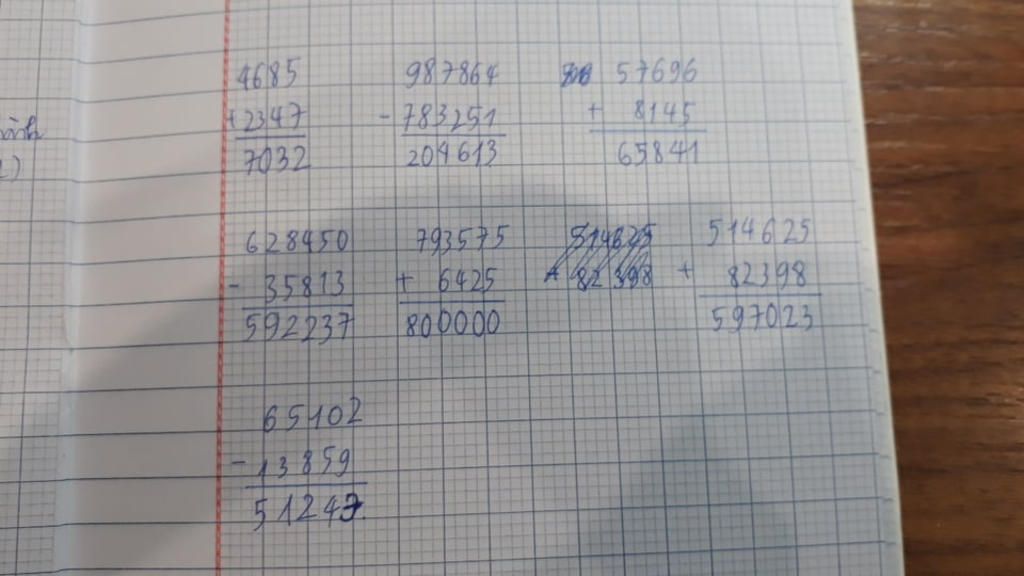 4685 987864 57696
+ 2347 - 783251 + 8145
7032 204613 65841
628450 793575 514625 514625
- 35813 + 6425 + 82398 + 82398
592237 800000 597023
65102
- 13859
51243